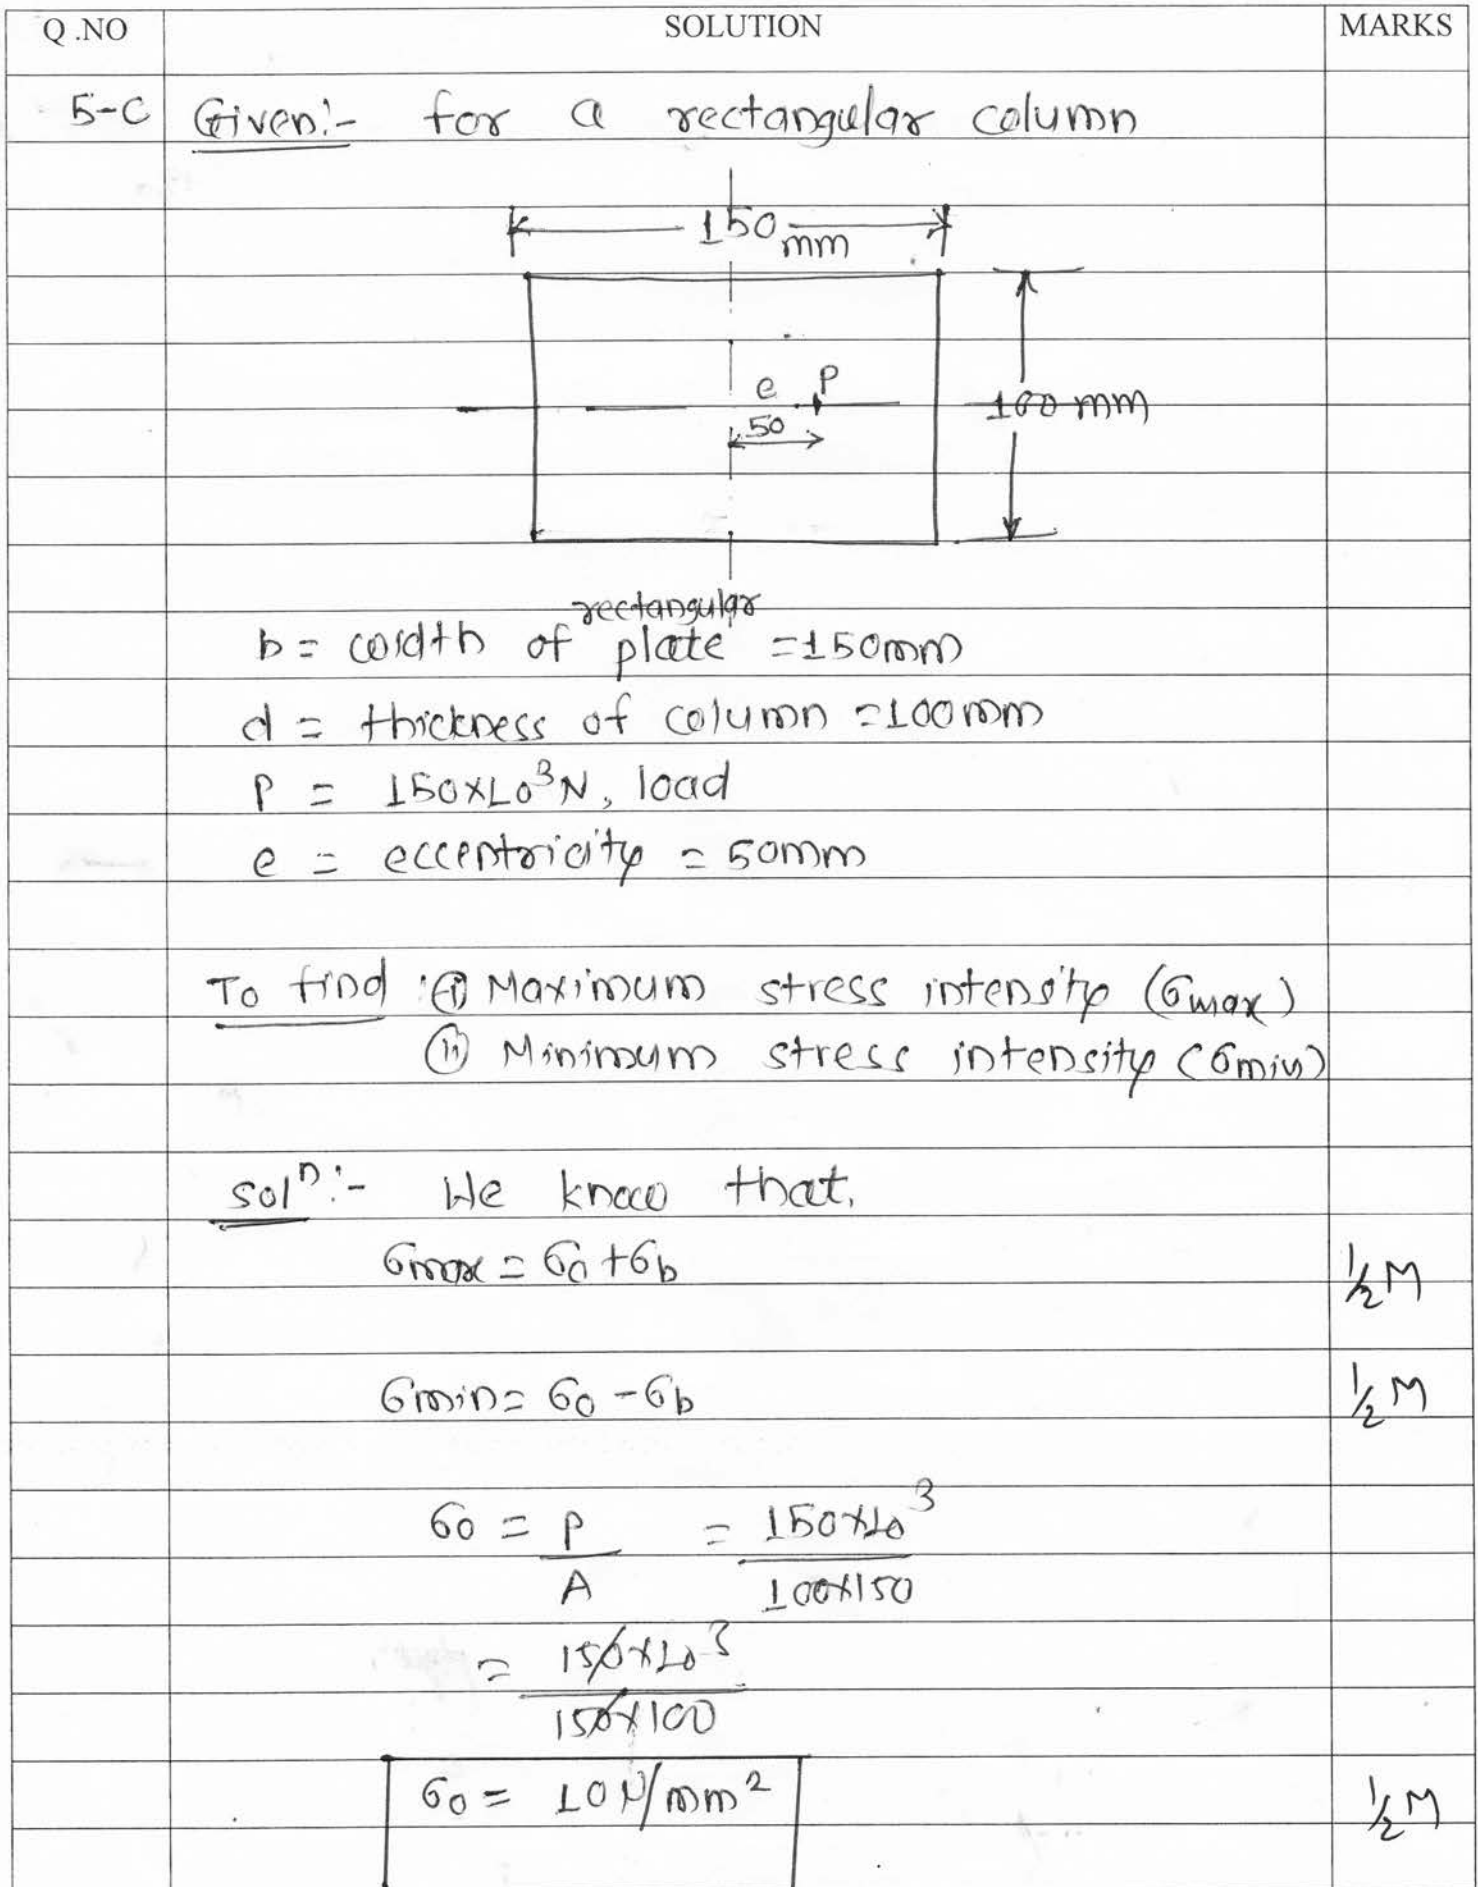 Q .NO SOLUTION MARKS
5-C Given:- for a rectangular column
150 mm
e P
50
100 mm
rectangular
b = width of plate = 150mm
d = thickness of column = 100mm
P = 150×10³N, load
e = eccentricity = 50mm
To find : (i) Maximum stress intensity (σmax)
(ii) Minimum stress intensity (σmin)
Solⁿ:- We know that,
σmax = σ0 + σb 1/2 M
σmin = σ0 - σb 1/2 M
σ0 = P/A = 150×10³/100×150
= 150×10³/150×100
σ0 = 10 N/mm² 1/2 M